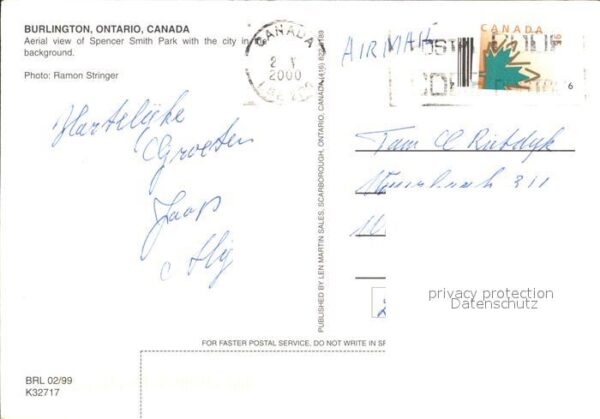 BURLINGTON, ONTARIO, CANADA
Aerial view of Spencer Smith Park with the city in the
background.
Photo: Ramon Stringer
CANADA
2000
AIRMAIL
CANADA
Hartelijke
Groeten
Jaap
PUBLISHED BY LEN MARTIN SALES, SCARBOROUGH, ONTARIO, CANADA (416)
311
privacy protection
Datenschutz
FOR FASTER POSTAL SERVICE, DO NOT WRITE IN
BRL 02/99
K32717